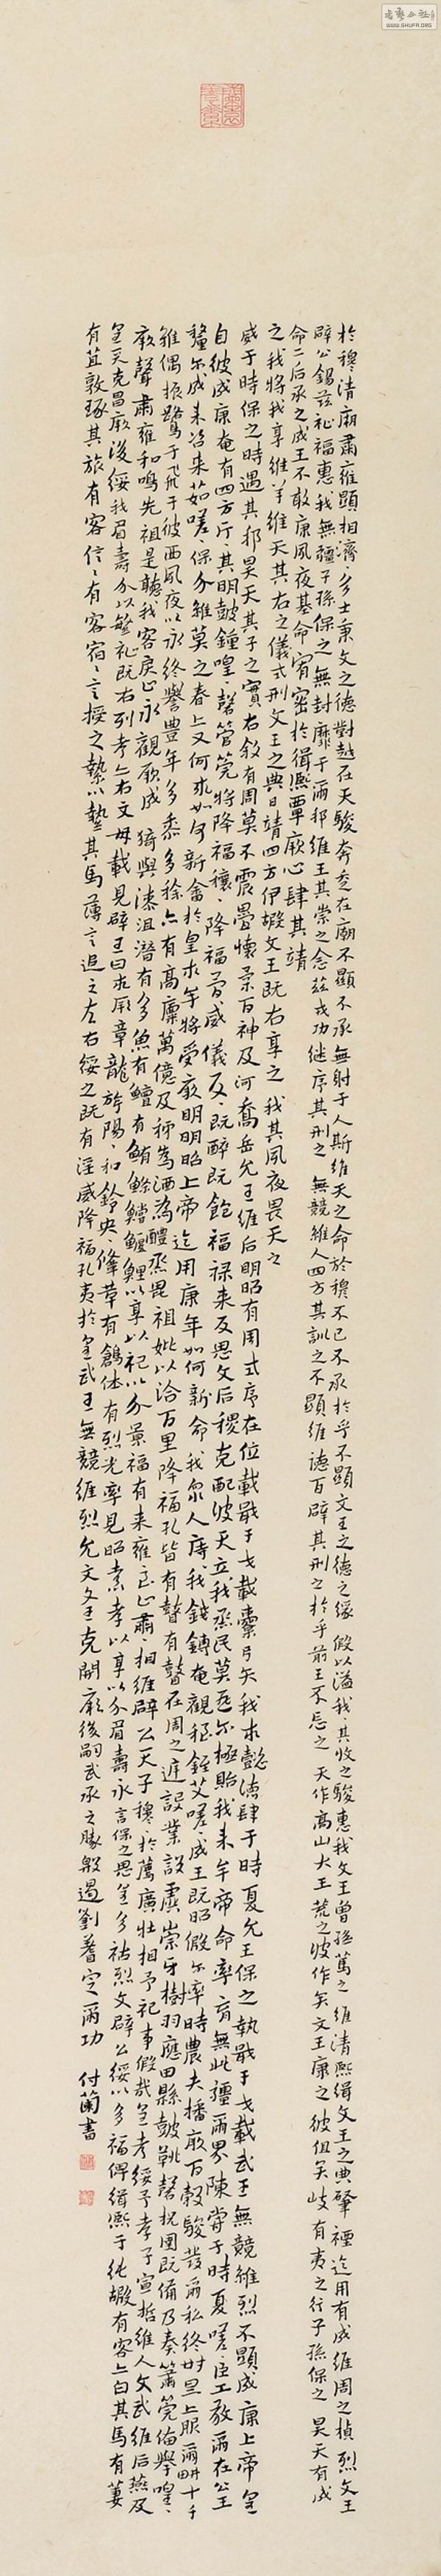 於穆清廟肅雍顯相濟〻多士秉文之德對越在天駿奔走在廟不顯不承無射于人斯維天之命於穆不已不承於乎不顯文王之德之假以溢我其收之駿惠我文王曾孫篤之維清熙緝文王之典肇禋迄用有成維周之楨烈文王
辟公錫茲祉福惠我無疆子孫保之無封靡于爾邦維王其崇之念茲戎功继序其刑之無競維人四方其訓之不顯維德百辟其刑之於乎前王不忘之天作高山大王荒之彼作矣文王康之彼徂矣岐有夷之行子孫保之昊天有成
命二后承之成王不敢康夙夜基命宥密於緝熙單厥心肆其靖
之我將我享維羊維天其右之儀式刑文王之典日靖四方伊嘏文王既右享之我其夙夜畏天之
威于時保之時邁其邦昊天其子之實右敘有周莫不震疊懷柔百神及河喬岳允王維后明昭有周式序在位載戢干戈載櫜弓矢我求懿德肆于時夏允王保之執戢干戈載武王無競維烈不顯成康上帝是
自彼成康奄有四方斤〻其明鼓鐘喤〻磬管筦將降福穰〻降福簡〻威儀反〻既醉既飽福禄来反思文后稷克配彼天立我烝民莫匪尔極貽我来牟帝命率育無此疆爾界陳常于時夏嗟〻臣工敬爾在公王
釐尔成来咨来茹嗟〻保介維莫之春亦又何求如何新畬於皇来牟將受厥明明昭上帝迄用康年如何新命我眾人庤我錢鎛奄觀銍艾嗟〻成王既昭假尔率時農夫播厥百穀駿發爾私終卅里亦服爾畊十千
維偶振鷺于飛于彼西夙夜以永終譽豐年多黍多稌亦有高廩萬億及秭為酒為醴烝畀祖妣以洽百里降福孔皆有瞽有瞽在周之庭設業設虡崇牙樹羽應田縣鼓鞉磬柷圉既備乃奏簫筦備舉喤〻
厥聲肅雍和鳴先祖是聽我客戾止永觀厥成猗與漆沮潛有多魚有鱣有鮪鰷鱨鰋鯉以享以祀以介景福有来雍〻至止肅〻相維辟公天子穆〻於薦廣牡相予祀事假哉皇考綏予孝子宣哲維人文武維后燕及
皇天克昌厥後綏我眉壽介以繁祉既右列考亦右文母載見辟王曰求厥章龍旂陽〻和鈴央〻鞗革有鶬休有烈光率見昭孝以享以介眉壽永言保之思皇多祜烈文辟公綏以多福俾緝熙于纯嘏有客亦白其馬有萋
有苴敦琢其旅有客信〻有客宿〻言授之縶以縶其馬薄言追之左右綏之既有淫威降福孔夷於皇武王無競維烈允文文王克開厥後嗣武承之勝殷遏劉耆定爾功 付蘭書
WWW.SHUFA.ORG